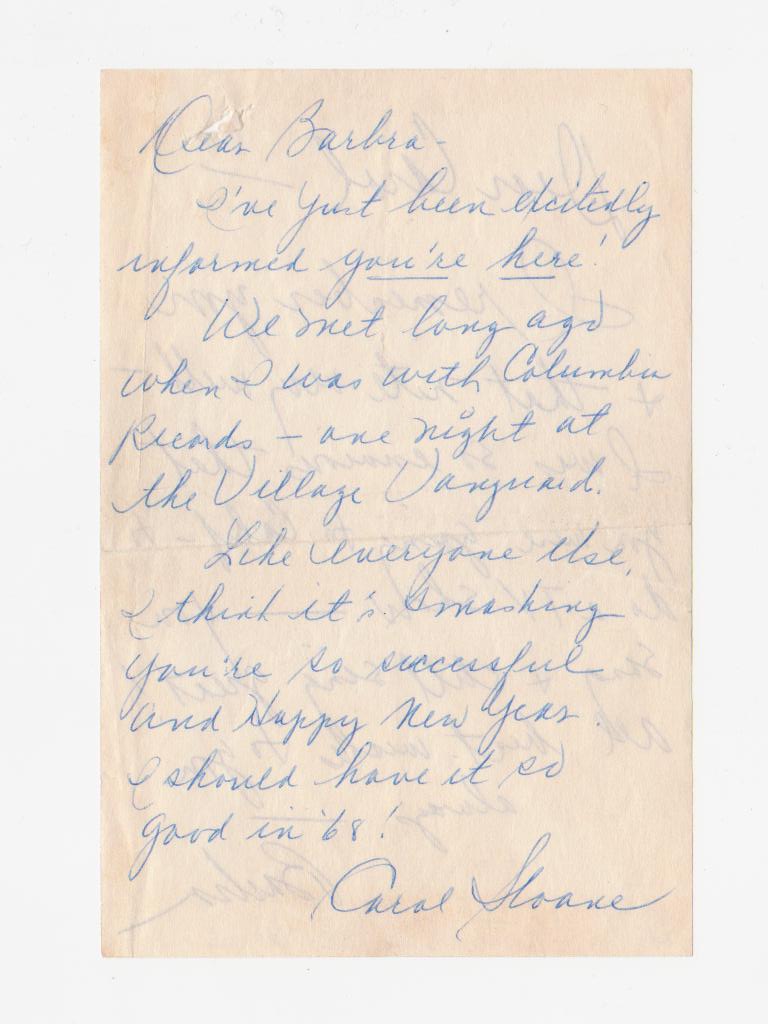 Dear Barbra -
I've just been excitedly
informed you're here!
We met long ago
when I was with Columbia
Records - one night at
the Village Vanguard.
Like everyone else,
I think it's smashing
you're so successful
and Happy New Year.
I should have it so
good in '68!
Carol Sloane